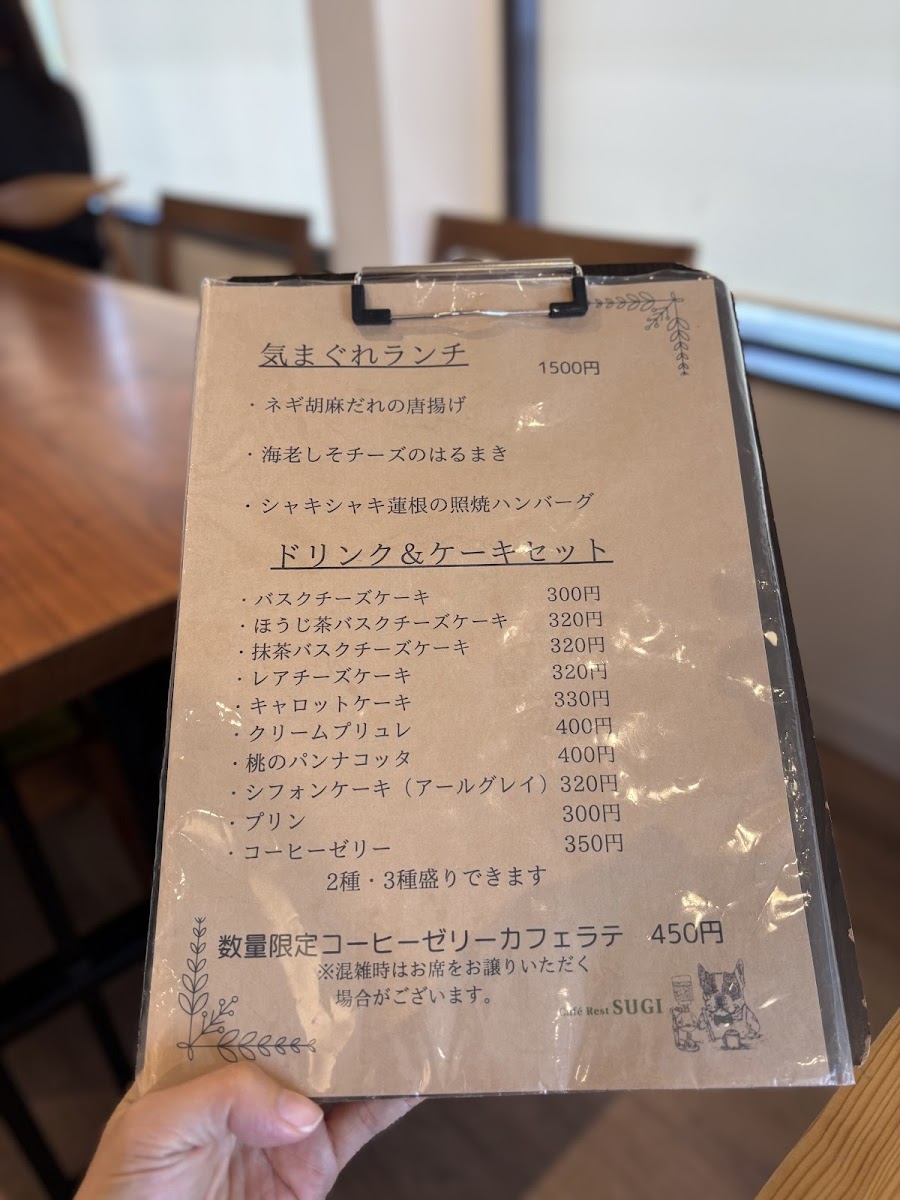 気まぐれランチ 1500円
・ネギ胡麻だれの唐揚げ
・海老しそチーズのはるまき
・シャキシャキ蓮根の照焼ハンバーグ
ドリンク＆ケーキセット
・バスクチーズケーキ 300円
・ほうじ茶バスクチーズケーキ 320円
・抹茶バスクチーズケーキ 320円
・レアチーズケーキ 320円
・キャロットケーキ 330円
・クリームブリュレ 400円
・桃のパンナコッタ 400円
・シフォンケーキ（アールグレイ）320円
・プリン 300円
・コーヒーゼリー 350円
2種・3種盛りできます
数量限定コーヒーゼリーカフェラテ 450円
※混雑時はお席をお譲りいただく
場合がございます。
Café Rest SUGI